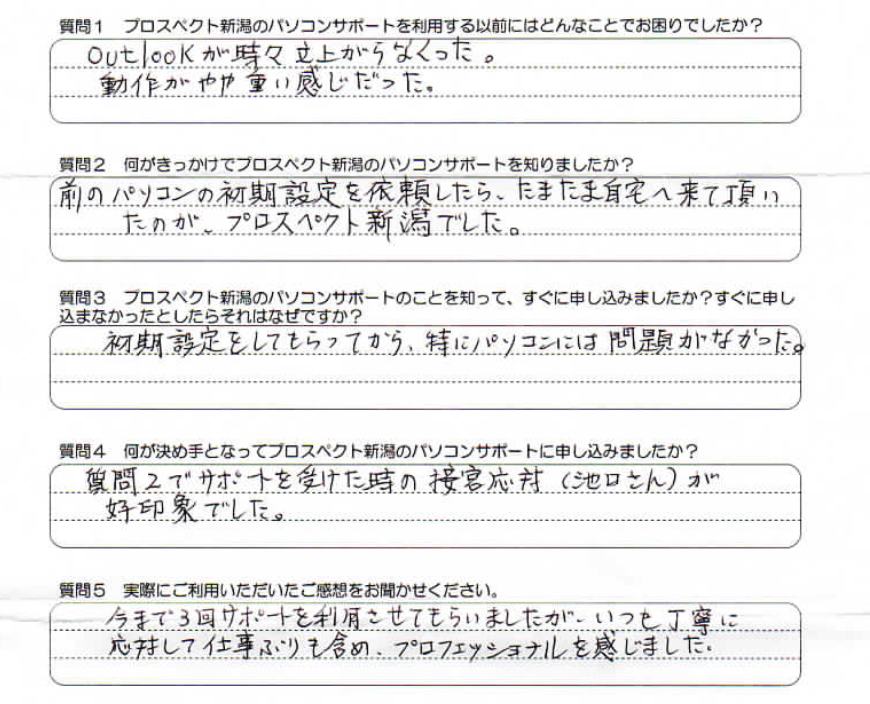 質問1　プロスペクト新潟のパソコンサポートを利用する以前にはどんなことでお困りでしたか?
Outlookが時々立上がらなくった。
動作がやや重い感じだった。
質問2　何がきっかけでプロスペクト新潟のパソコンサポートを知りましたか?
前のパソコンの初期設定を依頼したら、たまたま自宅へ来て頂い
たのが、プロスペクト新潟でした。
質問3　プロスペクト新潟のパソコンサポートのことを知って、すぐに申し込みましたか?すぐに申し
込まなかったとしたらそれはなぜですか?
初期設定をしてもらってから、特にパソコンには問題がなかった。
質問4　何が決め手となってプロスペクト新潟のパソコンサポートに申し込みましたか?
質問2でサポートを受けた時の接客応対(池口さん)が
好印象でした。
質問5　実際にご利用いただいたご感想をお聞かせください。
今まで3回サポートを利用させてもらいましたが、いつも丁寧に
応対して仕事ぶりも含め、プロフェッショナルを感じました。